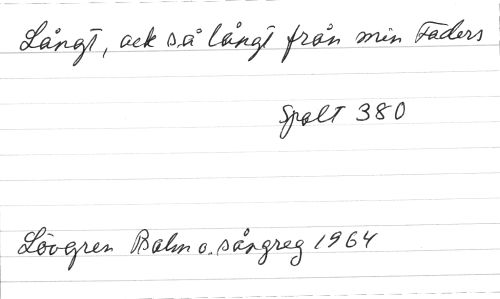 Långt, ack så långt från min Faders
Spalt 380
Lövgren Psalm o. sångreg 1964